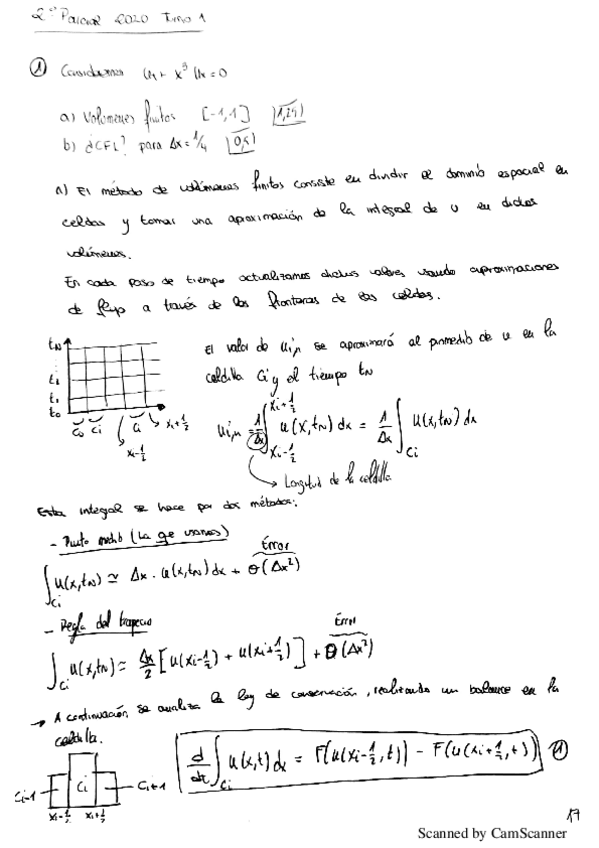 2º Parcial 2020 Turno 1
① Consideramos u_t + x³ u_x = 0
a) Volúmenes finitos [-1,1] 1,25
b) ¿CFL? para Δx = 1/4
a) El método de volúmenes finitos consiste en dividir el dominio espacial en
celdas y tomar una aproximación de la integral de u en dichos
volúmenes.
En cada paso de tiempo actualizamos dichos valores usando aproximaciones
de flujo a través de las fronteras de las celdas.
El valor de u_{i,n} se aproximará al promedio de u en la
celdilla C_i y el tiempo t_N
t_N
t_2
t_1
t_0
C_0 C_i C_i x_{i+1/2}
x_{i-1/2}
u_{i,n} = 1/Δx ∫_{x_{i-1/2}}^{x_{i+1/2}} u(x,t_N) dx = 1/Δx ∫_{C_i} u(x,t_N) dx
Longitud de la celdilla
Esta integral se hace por dos métodos:
- Punto medio (La qe usamos)
Error
∫_{C_i} u(x,t_N) ≃ Δx · u(x,t_N) dx + θ(Δx²)
- Regla del trapecio
Error
∫_{C_i} u(x,t_N) ≃ Δx/2 [u(x_{i-1/2}) + u(x_{i+1/2})] + θ(Δx²)
→ A continuación, se analiza la ley de conservación, realizando un balance en la
celdilla.
d/dt ∫_{C_i} u(x,t) dx = F(u(x_{i-1/2}, t)) - F(u(x_{i+1/2}, t)) ①
C_{i-1} C_i C_{i+1}
x_{i-1/2} x_{i+1/2}
17
Scanned by CamScanner